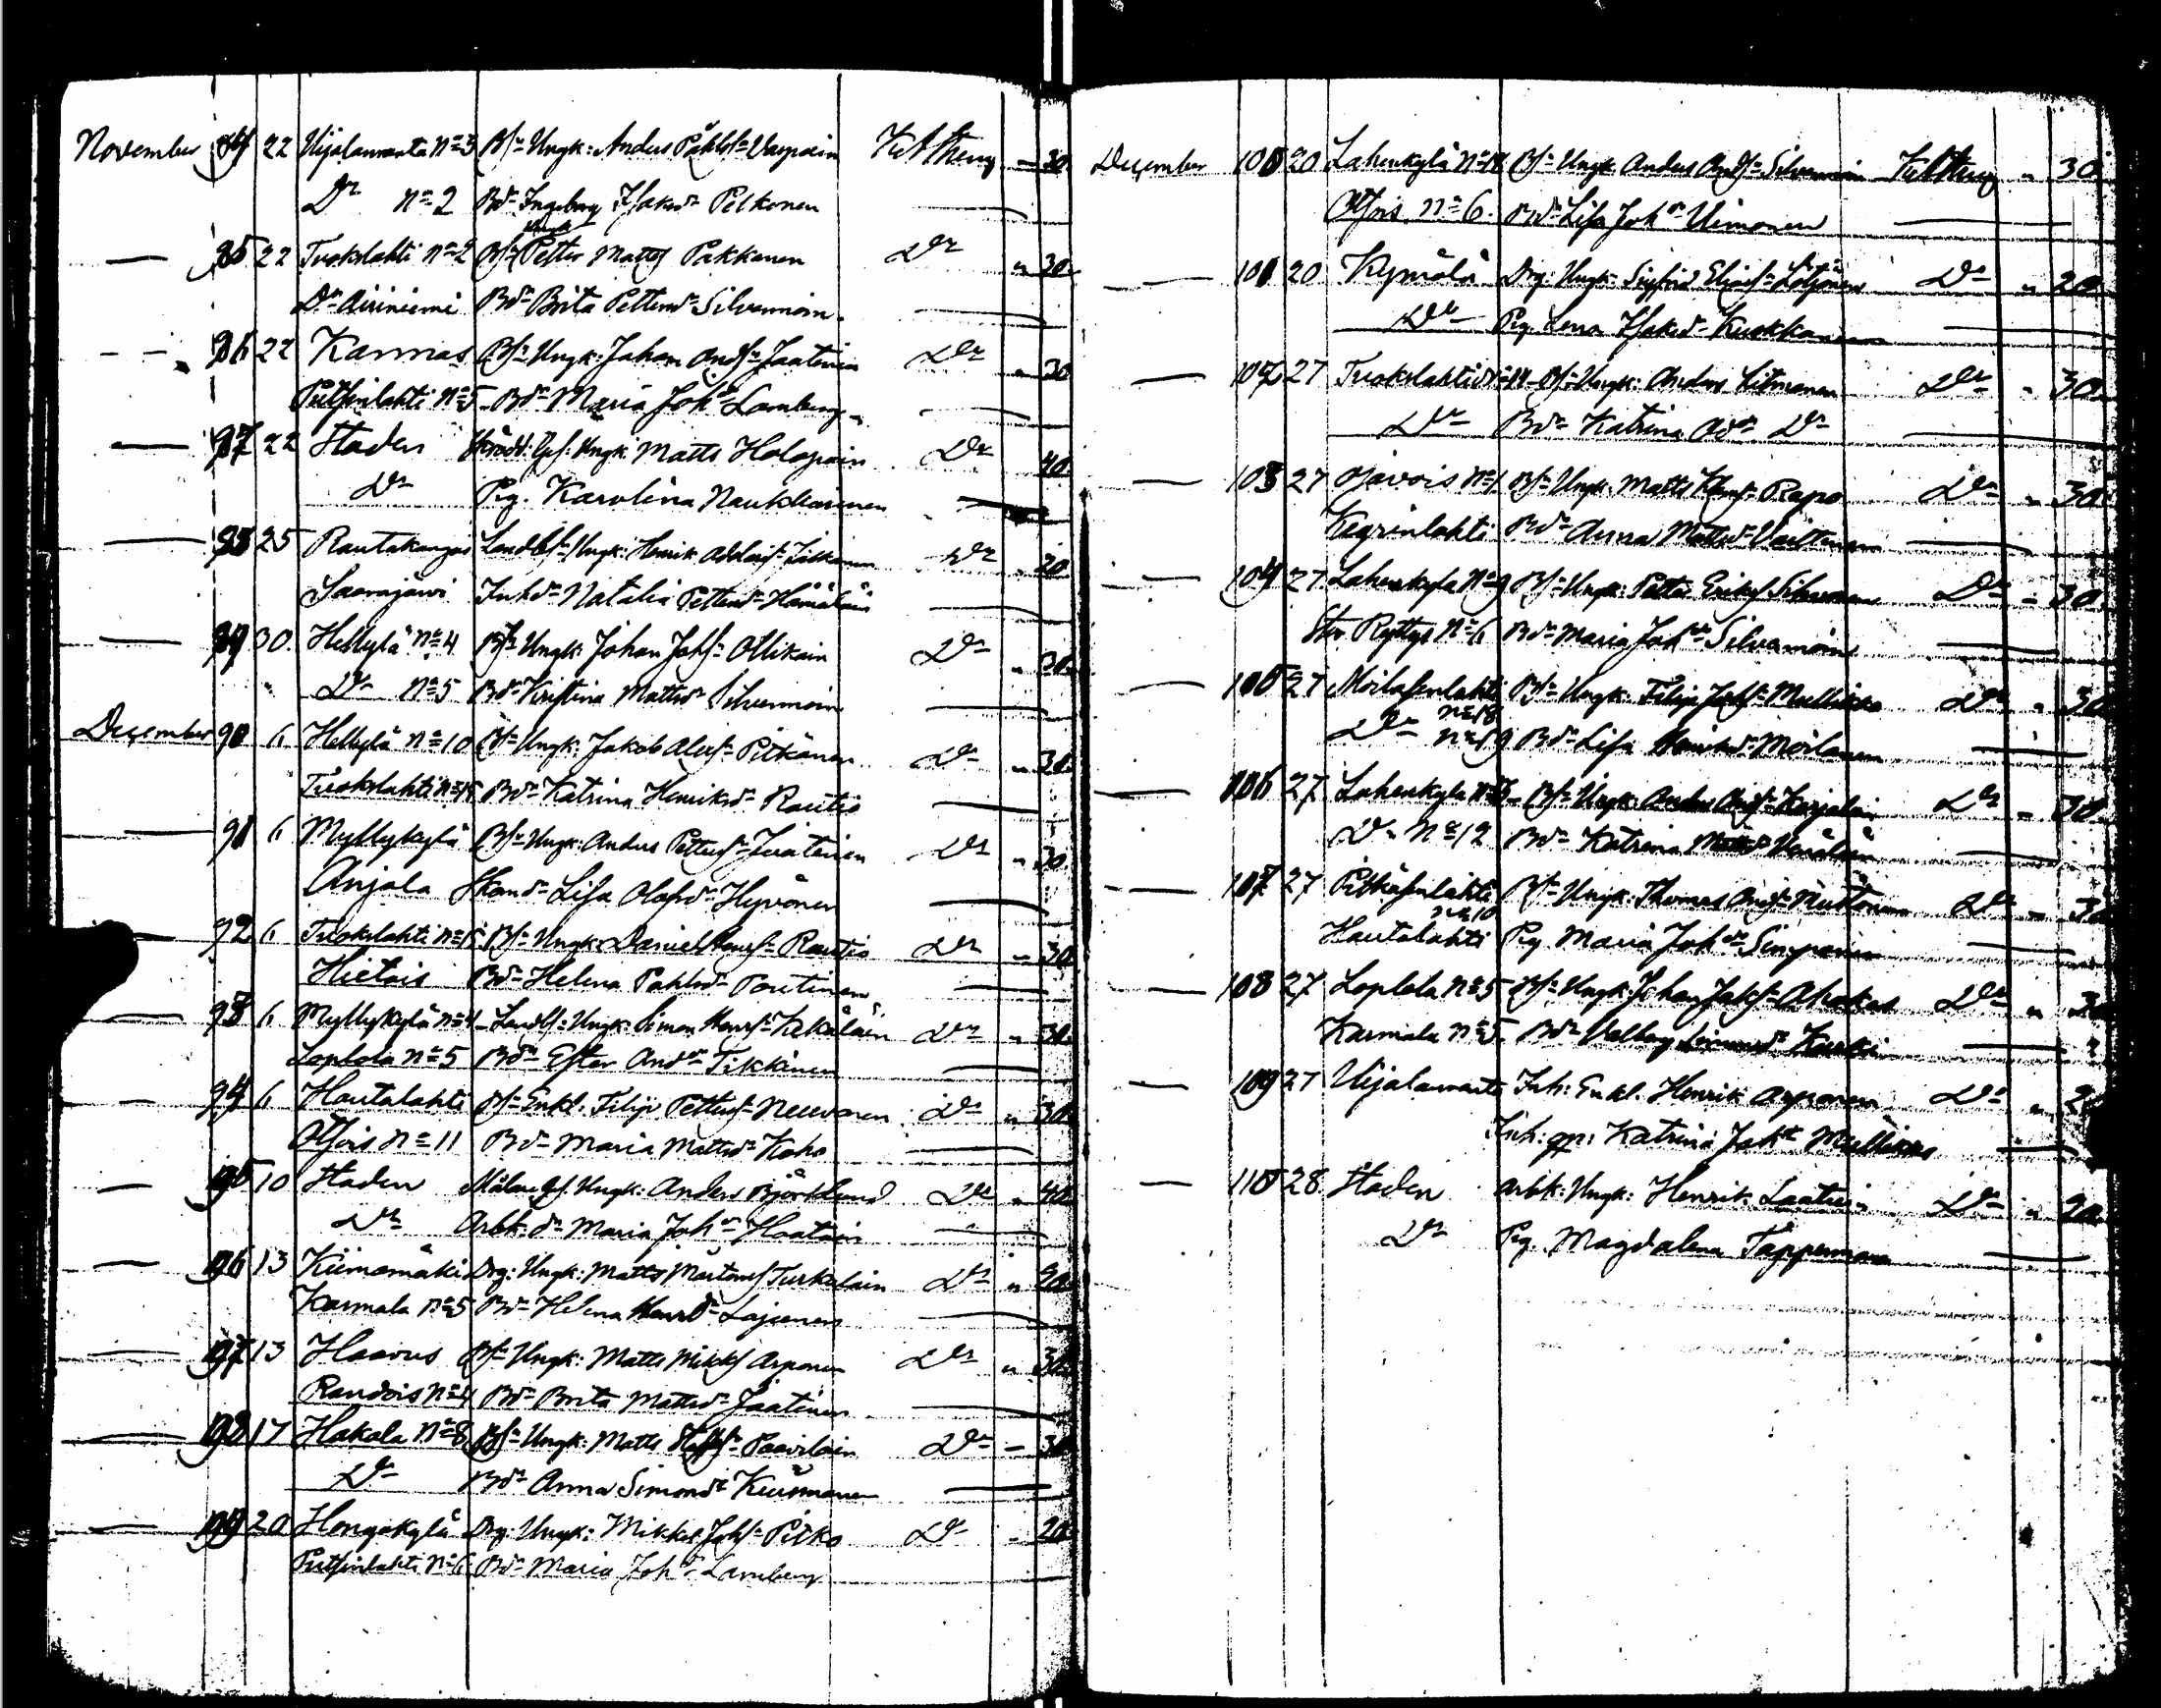 November 84 22 Uijalanranta No 3 Bs. Ungk: Anders Påhls. Varpain Kittheng - 30.
Do No 2 Bd. Ingeborg Isaksd. Pelkonen
85 22 Tuokslahti No 2 Bs. Ungk Petter Matts Pakkanen Do " 30.
Do Airiniemi Bd. Brita Pettersd. Silvennoin
86 22 Karmas Bs. Ungk: Johan Ands. Jaatinen Do " 30
Putsinlahti No 5 Bd. Maria Johd. Lamberg
87 22 Staden Skrädd: Ges: Ungk: Matts Holopain Do 40
Do Pig. Karolina Naukkarinen
88 25 Rautakangas Landbs. Ungk: Henrik Do 20
Saarnjärvi Inhd. Natalia Pettersd. Hämäläin
89 30. Hellylä No 4 Bs. Ungk: Johan Johs. Ollikain Do " 30.
Do No 5 Bd. Kristina Mattsd. Silvennoin
December 90 6 Hellylä No 10 Bs. Ungk: Jakob Alexs. Pitkänen Do " 30.
Tuokslahti No 15 Bd. Katrina Henriksd. Rautio
91 6 Myllykylä Bs. Ungk: Anders Petters. Jaatinen Do " 30
Anjala Skand. Lisa Olofsd. Hyvönen
92 6 Tuokslahti No 15 Bs. Ungk: Daniel Henrs. Rautio Do " 30
Hietois Bd. Helena Pahlsd. Poutinen
93 6 Myllykylä No 4 Landbs: Ungk: Simon Henrs. Kekäläin Do " 30.
Loplola No 5 Bd. Ester Andd. Tikkinen
94 6 Hautalahti Bs. Enkl: Filip Petters. Neuvonen Do " 30.
Otsois No 11 Bd. Maria Mattsd. Koho
95 10 Staden Målare Ges. Ungk: Anders Björklund Do " 40.
Do Arbk. dr Maria Johd. Haatain
96 13 Kiimamäki Drg: Ungk: Matts Mårtens. Turkulain Do " 20.
Karmala No 5 Bd. Helena Henrd. Lajunen
97 13 Haavus Bs. Ungk: Matts Mikks. Arponen Do " 30.
Randois No 4 Bd. Brita Mattsd. Jaatinen
98 17 Hakala No 8 Bs. Ungk: Matts Staffs. Paavilain Do - 30.
Do Bd. Anna Simonsd. Kiiskinen
99 20 Hongakylä Drg: Ungk: Mikkel Johs. Pitko Do - 20.
Putsinlahti No 6 Bd. Maria Johd. Lamberg
December 100 20 Lahenkylä No 18 Bs. Ungk: Anders Ands. Silvennoin Kittheng " 30.
Otsois No 6. Bd. Lisa Johd. Uimonen
101 20 Kymälä Drg: Ungk: Sigfrid Eliass. Lötjönen Do " 20
Do Pig. Lena Isaksd. Kuokkanen
102 27 Tuokslahti No 14 Bs. Ungk: Anders Litmanen Do " 30.
Do Bd. Katrina Add. Do
103 27 Ojavois No 1 Bs. Ungk: Matts Klems. Rapo Do " 30.
Kegrinlahti Bd. Anna Mattsd.
104 27 Lahenkylä No 9 Bs. Ungk: Petter Eriks. Silvennoin Do - 30.
Stor Ryttys No 6 Bd. Maria Johd. Silvennoin
105 27 Moilasenlahti No 18 Bs. Ungk: Filip Johs. Mullikka Do " 30
Do No 19 Bd. Lisa Henriksd. Moilanen
106 27 Lahenkylä No 5 Bs. Ungk: Anders Ands. Karjalain Do " 30.
Do No 12 Bd. Katrina Mattsd. Venäläin
107 27 Pitkäsenlahti No 10 Bs. Ungk: Thomas Ands. Do " 30
Hautalahti Pig Maria Johd. Simponen
108 27 Loplola No 5 Bs. Ungk: Johan Jaks. Ahokas Do " 30
Karmala No 5. Bd. Valborg Simonsd. Karki
109 27 Uijalanranta Inh: Enkl. Henrik Arponen Do " 20
Inh: qn: Katrina Johd. Mullikka
110 28 Staden Arbk: Ungk: Henrik Laatin Do " 20.
Do Pig. Magdalena Tappenman